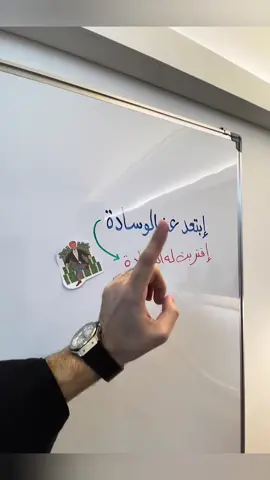 إبتعد عن الوسادة
إقتربت له